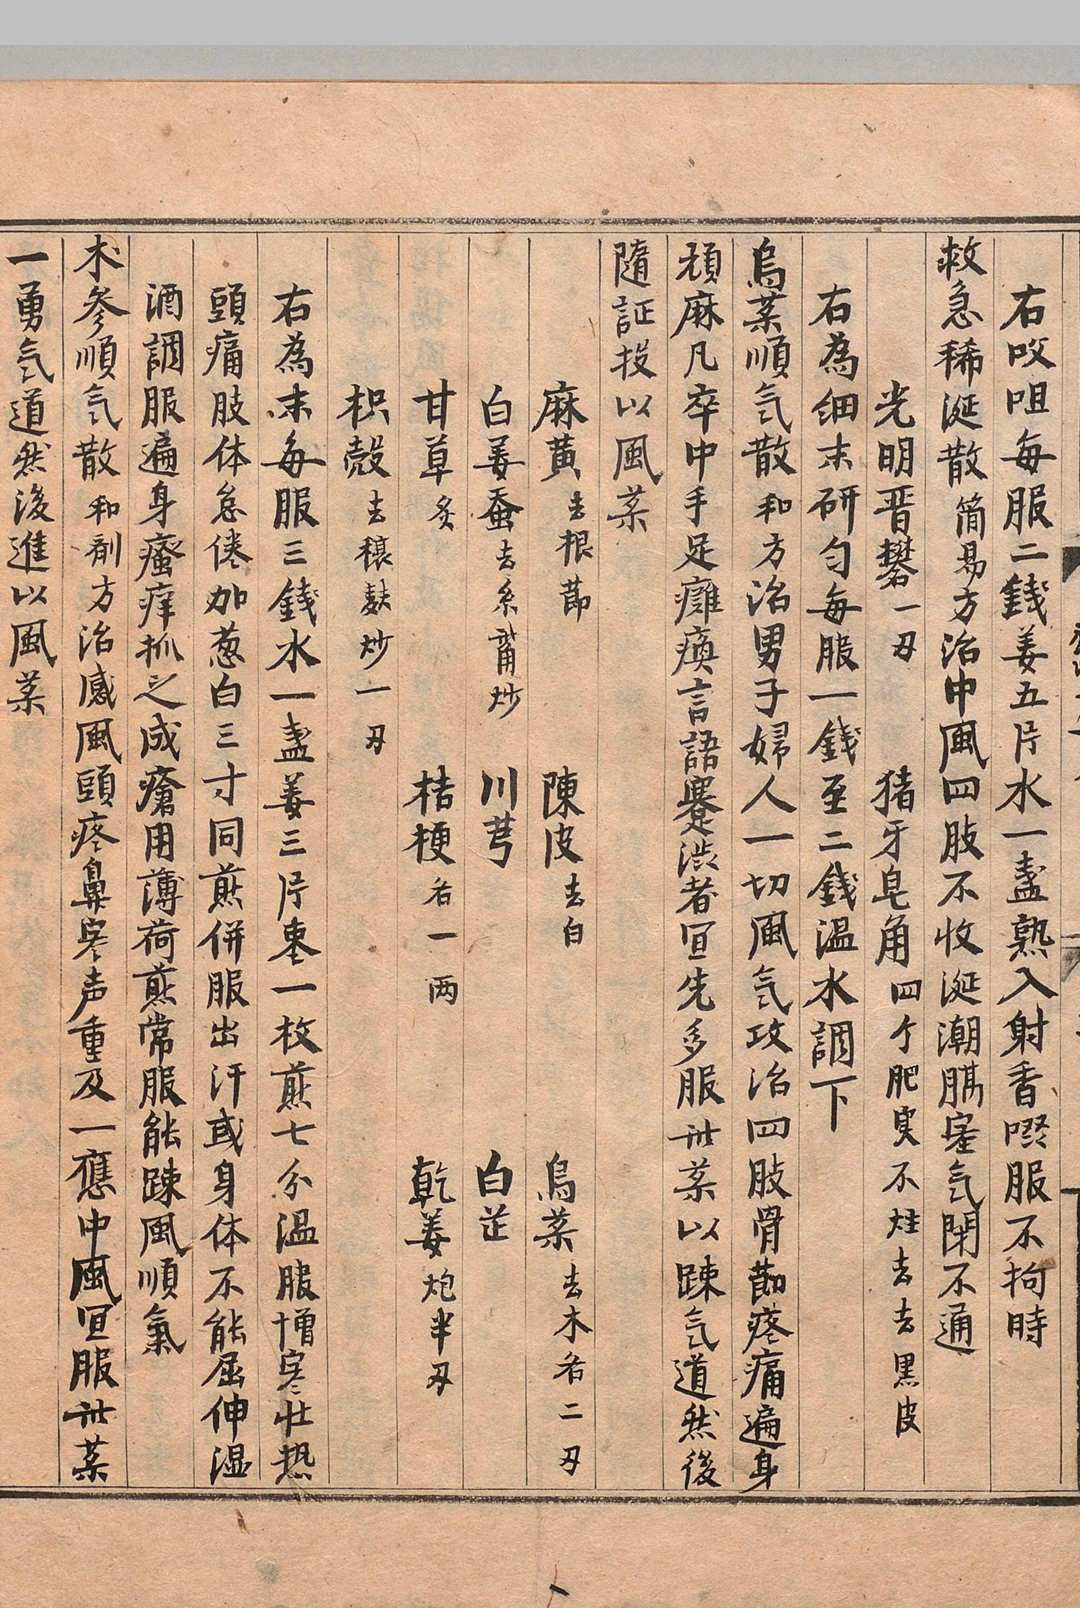 右㕮咀每服二錢姜五片水一盞熟入射香啜服不拘時
救急稀涎散簡易方治中風四肢不收涎潮膈塞气閉不通
光明晋礬一刄 猪牙皂角四个肥実不蛀去去黒皮
右為细末研匀每服一錢至二錢温水調下
烏薬順气散和方治男子婦人一切風气攻治四肢骨莭疼痛遍身
頑麻凡卒中手足癱瘓言語蹇渋者冝先多服此薬以踈气道然後
随証投以風薬
麻黄去根莭 陳皮去白 烏薬去木各二刄
白姜蚕去糸觜炒 川芎 白芷
甘草炙 桔梗各一両 乾姜炮半刄
枳殻去穣麸炒一刄
右為末每服三錢水一盞姜三片枣一枚煎七分温服憎寒壮热
頭痛肢体怠倦加葱白三寸同煎併服出汗或身体不能屈伸温
酒調服遍身瘙痒抓之成瘡用薄荷煎常服能踈風順氣
木參順气散和剤方治感風頭疼鼻塞声重及一應中風冝服此薬
一勇气道然後進以風薬